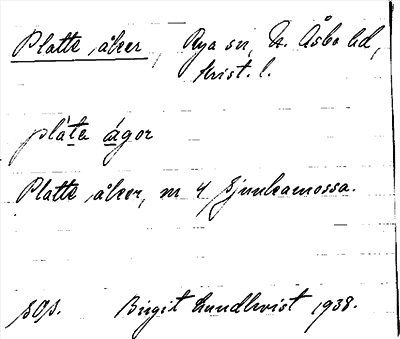 Platte åker, Rya sn, N. Åsbo hd,
Krist. l.
pláta ágor
Platte åker, m 4 Sjunkamossa.
sOs. Birgit Lundkvist 1938.